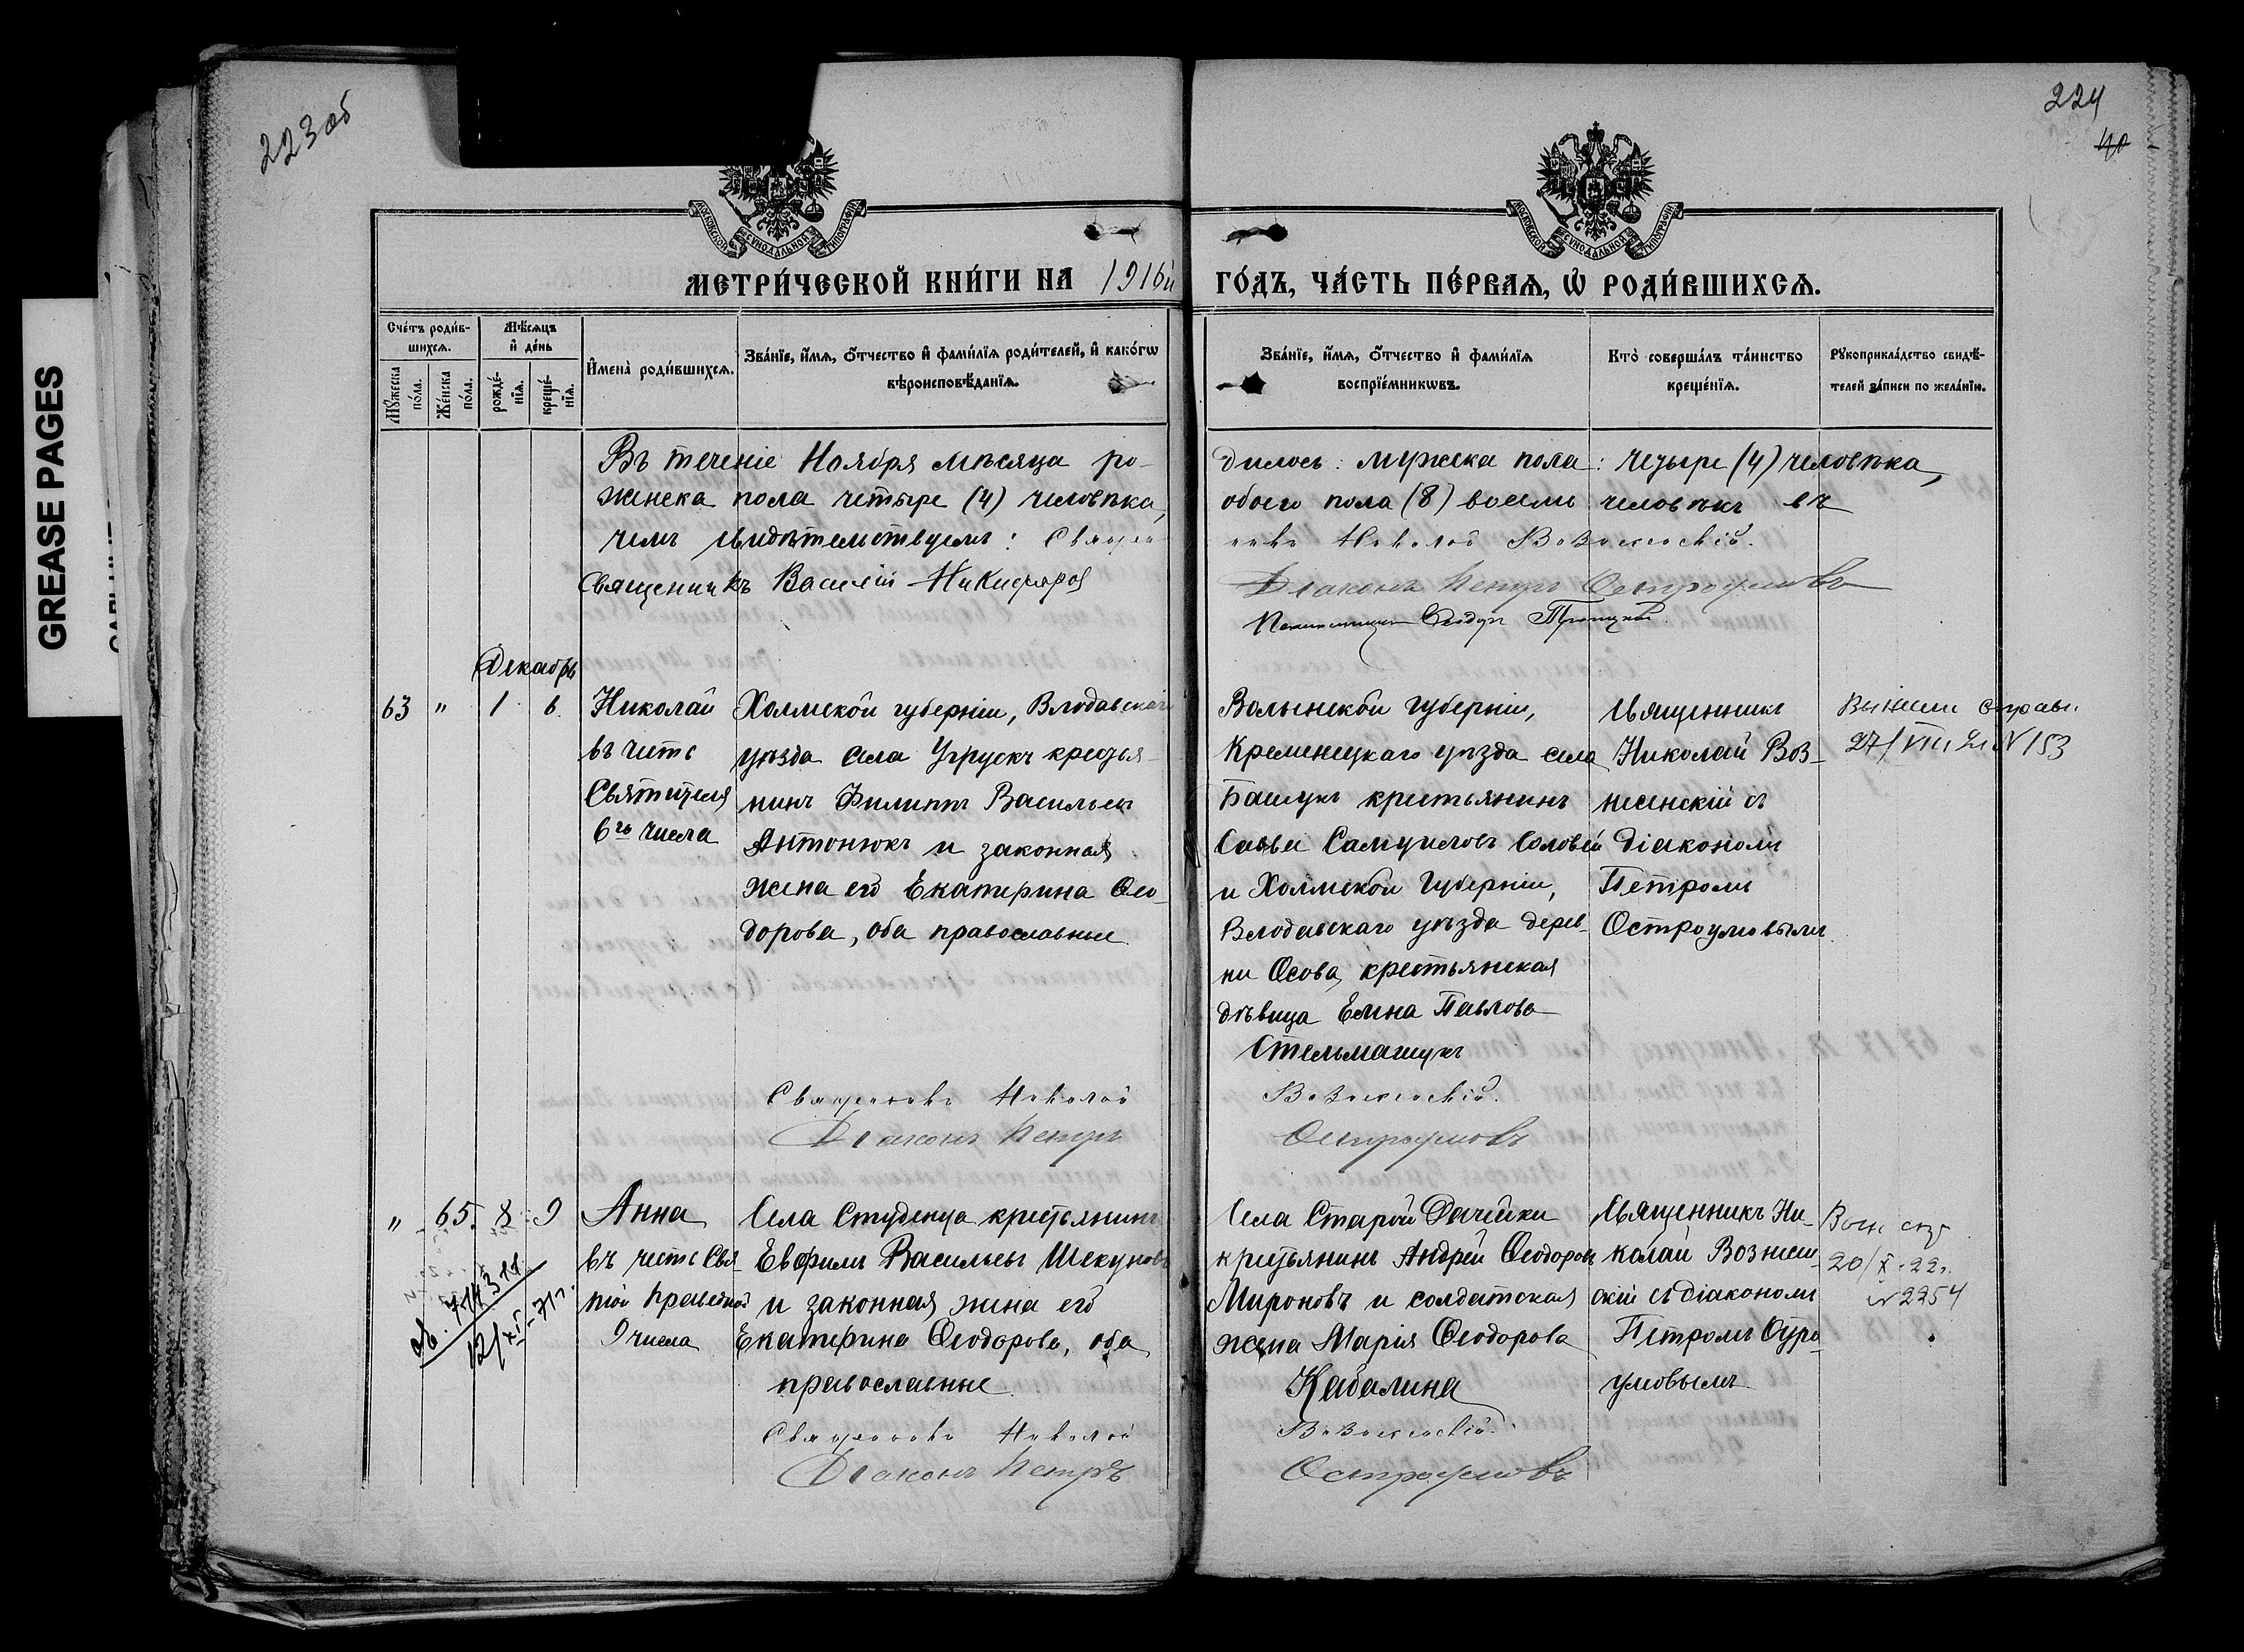 223 об
224
40
GREASE PAGES
МОСКОВСКОЙ СѴНОДАЛЬНОЙ ТИПОГРАФІИ
МОСКОВСКОЙ СѴНОДАЛЬНОЙ ТИПОГРАФІИ
МЕТРИ́ЧЕСКОЙ КНИ́ГИ НА 1916й
ГО́ДЪ, ЧА́СТЬ ПЕ́РВАѦ, Ѿ РОДИ́ВШИХСѦ.
Сче́тъ роди́в-
шихсѧ.
Мѣ́сѧцъ
и҆ де́нь
Мꙋ́жеска
по́ла.
Же́нска
по́ла.
рожде́-
нїѧ.
креще́-
нїѧ.
И҆мена̀ роди́вшихсѧ.
Зва́нїе, и҆́мѧ, ѻ҆́тчество и҆ фами́лїѧ роди́телей, и҆ како́гѡ
вѣроисповѣ́данїѧ.
Зва́нїе, и҆́мѧ, ѻ҆́тчество и҆ фами́лїѧ
воспрїе́мникѡвъ.
Кто̀ соверша́лъ та́инство
креще́нїѧ.
Рꙋкоприкла́дство свидѣ́-
телей за́писи по жела́нїю.
Въ теченіе Ноября мѣсяца ро-
дилось: мужска пола: четыре (4) человѣка,
женска пола четыре (4) человѣка,
обоего пола (8) восемь человѣкъ въ
чемъ свидѣтельствуемъ: Священ
никъ Николай Вознесенскій.
Священникъ Василій Никифоров
Діаконъ Петръ Остроумовъ
Псаломщикъ Ѳеодоръ Троицкій.
Декабрь
63 " 1 6.
Николай
въ честь
Святителя
6го числа
Холмской губерніи, Влодавскаго
уѣзда села Угрускъ крестья-
нинъ Филиппъ Васильевъ
Антонюкъ и законная
жена его Екатерина Ѳео-
дорова, оба православные.
Волынской губерніи,
Кременецкаго уѣзда села
Башукъ крестьянинъ
Савва Самуиловъ Соловей
и Холмской губерніи,
Влодавскаго уѣзда дерев-
ни Осова, крестьянская
дѣвица Елена Павлова
Стельмащукъ
Священникъ
Николай Воз-
несенскій съ
діакономъ
Петромъ
Остроумовымъ.
27/VIII 21 N 153
Священникъ Николай
Вознесенскій.
Діаконъ Петръ
Остроумовъ
" 65. 8 9
12/XI-71г.
Анна
въ честь Свя-
той праведной
9 числа
Села Студенца крестьянинъ
Евфимъ Васильевъ Шекуновъ
и законная жена его
Екатерина Ѳеодорова, оба
православные.
Села Старой
крестьянинъ Андрей Ѳеодоровъ
Мироновъ и солдатская
жена Марія Ѳеодорова
Кабалина
Священникъ Ни-
колай Вознесен-
скій съ діакономъ
Петромъ Остро-
умовымъ
20/X-22г.
N 2254
Священникъ Николай
Вознесенскій.
Діаконъ Петръ
Остроумовъ